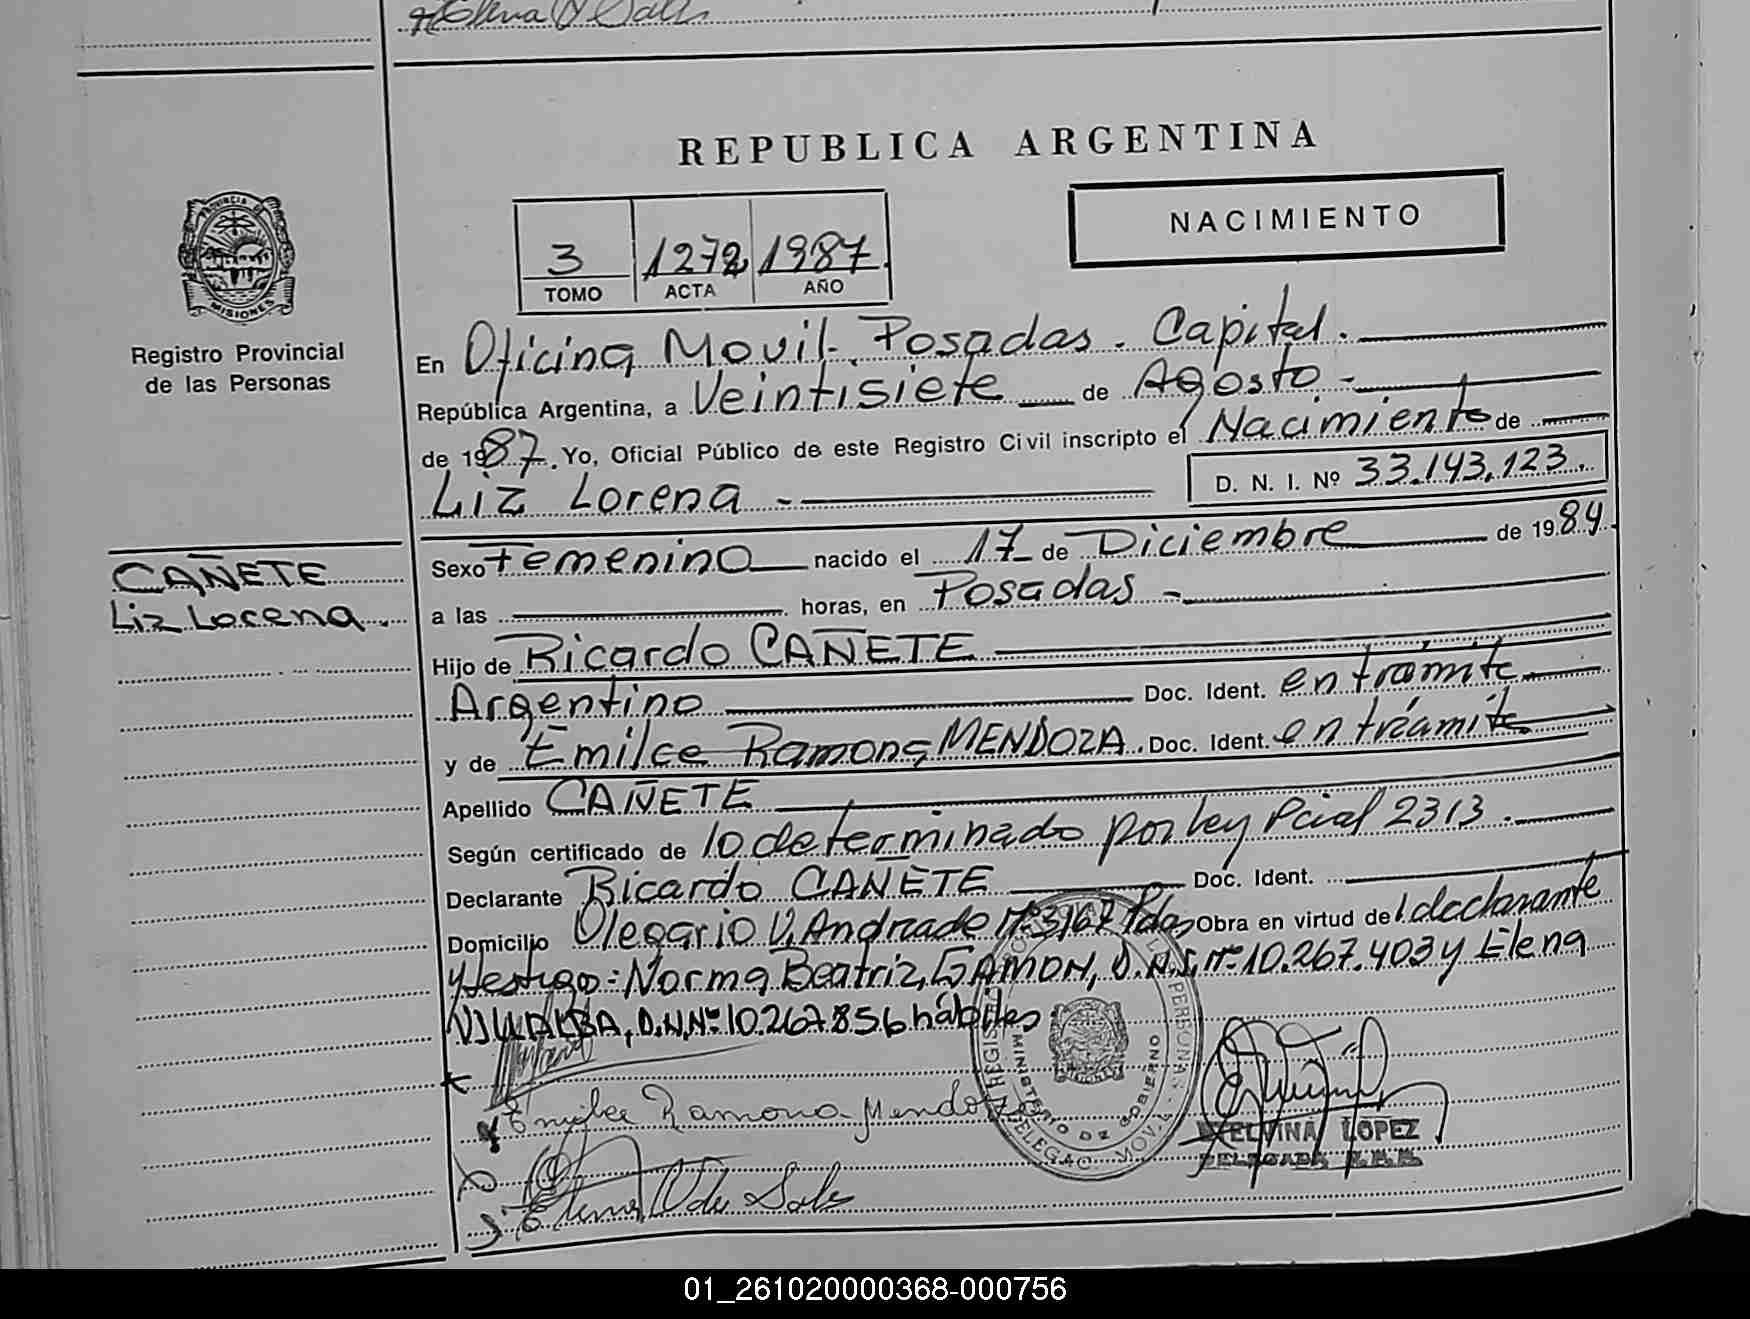 Elena V de Sales
REPUBLICA ARGENTINA
NACIMIENTO
3 1272 1987
TOMO ACTA AÑO
PROVINCIA DE
MISIONES
Registro Provincial
de las Personas
En Oficina Movil. Posadas. Capital.
República Argentina, a Veintisiete de Agosto -
de 1987. Yo, Oficial Público de este Registro Civil inscripto el Nacimiento de
Liz Lorena - D. N. I. Nº 33.143.123.
CAÑETE
Liz Lorena.
Sexo Femenino nacido el 17 de Diciembre de 1984
a las horas, en Posadas -
Hijo de Ricardo CAÑETE
Argentino Doc. Ident. en trámite
y de Emilce Ramona MENDOZA. Doc. Ident. en tréamite
Apellido CAÑETE
Según certificado de lo determinado por ley Pcial 2313.
Declarante Ricardo CAÑETE Doc. Ident.
Domicilio Olegario V. Andrade Nº 3167 Pdas Obra en virtud del declarante
y testigo: Norma Beatriz GAMON, D.N.I. Nº 10.267.403 y Elena
VILLALBA, D.N.Nº 10.267.856 hábiles
Emilce Ramona Mendoza
Elena V de Sales
MINISTERIO DE GOBIERNO
DELEGAC. MOV.
ELVINA LOPEZ
DELEGADA
01_261020000368-000756